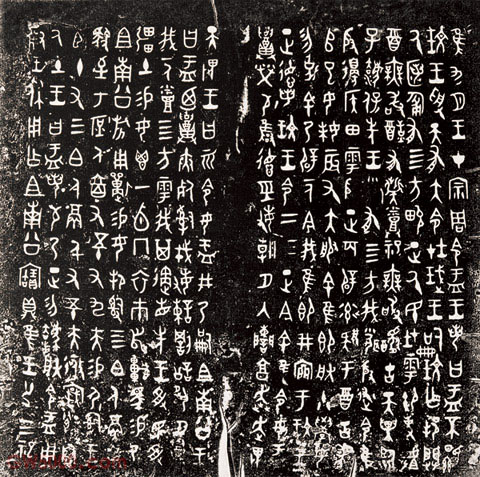 隹九月王才宗周令盂王若曰盂不顯
玟王受天有大令在珷王嗣玟乍邦闢
厥匿匍有四方畯正厥民在雩御事
酒無敢酖有祡烝祀無敢擾古天異臨
子灋保先王有四方我聞殷墜令隹
殷邊侯田雩殷正百辟率肄于酒古喪
師已女妹辰又大服余隹即朕小學女
勿克余乃辟一人今我隹即井于玟王
正德若玟王令二三正今余隹令女盂
召榮敬雍德巠敏朝夕入諫享奔走畏
天畏王曰而令女盂井乃嗣且南公王
曰盂廼召夾死司戎敏諫罰訟夙夕召
我一人烝四方雩我其遹省先王受民受
疆土易女鬯一卣冂衣巿舄車馬易乃
且南公旂用狩易女邦司四白人鬲自
馭至于庶人六百又五十又九夫易尸司王
臣十又三白人鬲千又五十夫遷自
厥土王曰盂若敬乃正勿灋朕令盂用
對王休用乍且南公寶鼎隹王廿又三祀